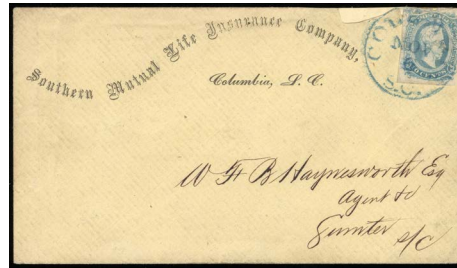 Southern Mutual Life Insurance Company,
Columbia, S. C.
NOV
S.C.
W F B Haynesworth Esq
Agent &c
Sumter
S/C